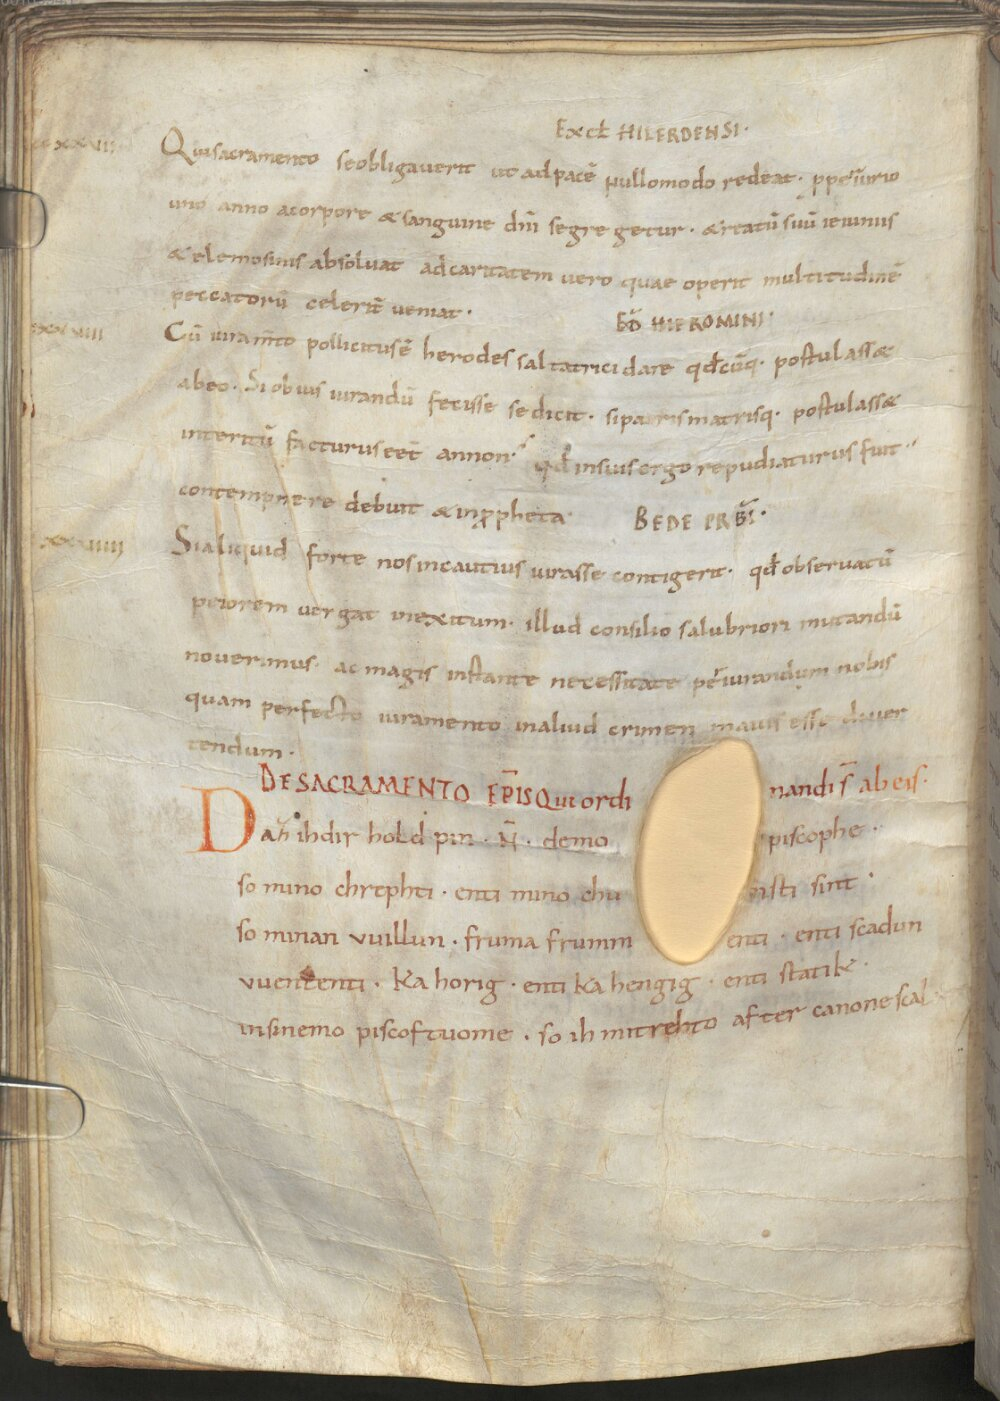 Ex cł HILERDENSI·
Qui sacramento se obligaverit ut ad pacē nullo modo redeat· p̱ p̱eiurio
uno anno a corpore & sanguine dn̄i segregetur· & reatū suū ieiuniis
& elemosinis absolvat ad caritatem vero quae operit multitudinē
peccatorū celerit̄ veniat·
Eƀ HIERONIMI·
Cū iuram̄to pollicitus ē herodes saltatrici dare qđcūq· postulass&
ab eo· Si ob ius iurandū fecisse se dicit· si patris matrisq· postulass&
interitū facturus eēt annon· qđ in suis ergo repudiaturus fuit·
contempnere debuit & in ꝓpheta·
BEDE PR̄BI·
Si aliquid forte nos incautius iurasse contigerit· qđ observatū
peiorem vergat in exitum· illud consilio salubriori mutandū
noverimus· ac magis instante necessitate p̱eiurandum nobis
quam perfecto iuramento in aliud crimen maius esse diver
tendum·
DE SACRAMENTO EP̄IS Qui ordi nandi s̄ ab eis·
Daz ih dir hold pin· N̄· demo piscophe·
so mino chrephti· enti mino chu nsti sint·
so minan vuillun· fruma frumm enti· enti scadun
vuententi· kahorig· enti kahengig· enti statik·
in sinemo piscoftuome· so ih mit rehto after canone scal·